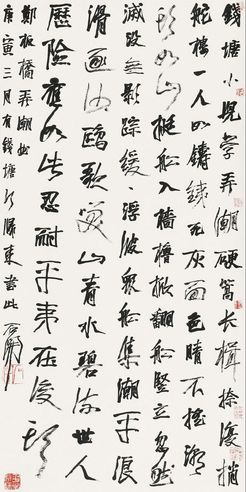 錢塘小兒學弄潮硬篙長楫捺復捎
舵樓一人如鑄鐵死灰面色睛不搖潮
頭如山挺船入檣櫓掀翻船豎立忽然
滅没無影踪緩緩浮波眾船集潮平浪
滑逐沙鷗歌笑山青水碧流世人
歷險應如此忍耐平夷在後頭
鄭板橋弄潮曲
庚寅三月有錢塘行歸来書此